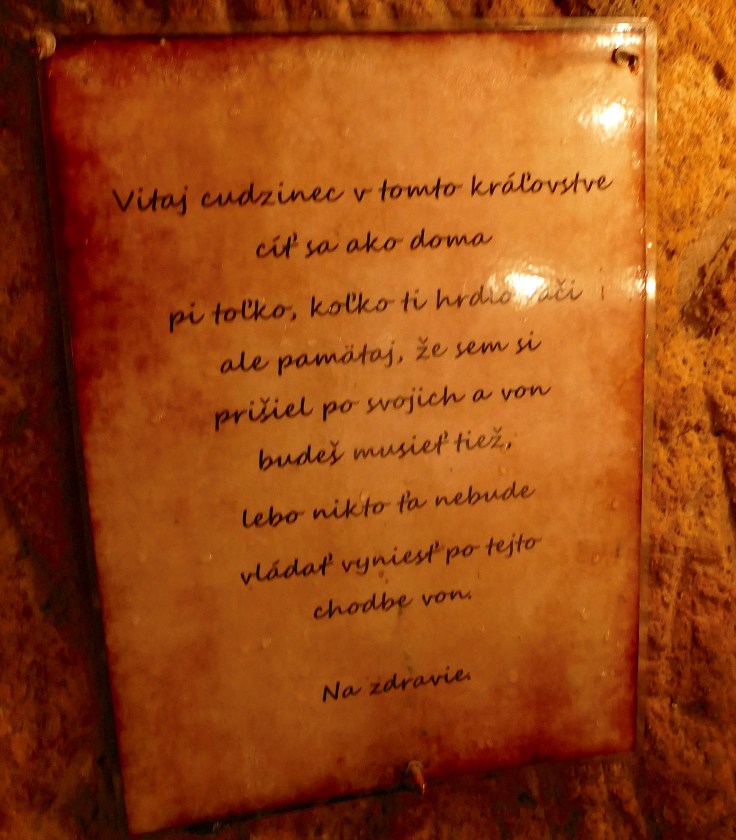 Vitaj cudzinec v tomto kráľovstve
cíť sa ako doma
pi toľko, koľko ti hrdlo
ale pamätaj, že sem si
prišiel po svojich a von
budeš musieť tiež,
lebo nikto ťa nebude
vládať vyniesť po tejto
chodbe von.
Na zdravie.